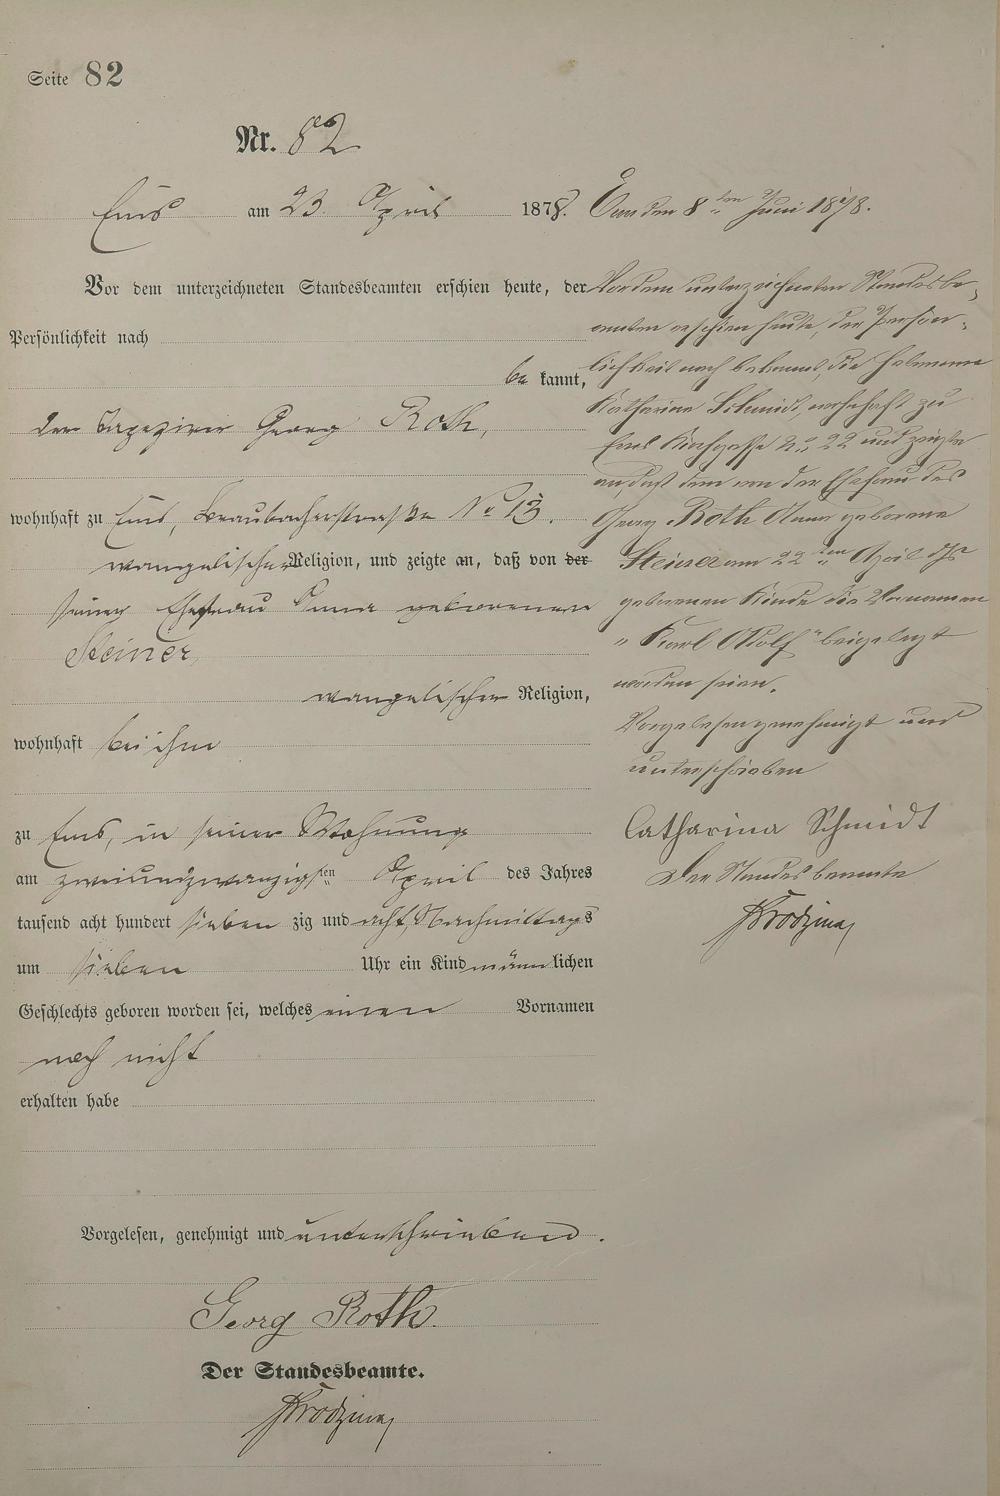 Seite 82
Nr. 82
Ems am 23. April 1878.
Vor dem unterzeichneten Standesbeamten erschien heute, der
Persönlichkeit nach
be kannt,
der Tapezirer Georg Roth,
wohnhaft zu Ems, Braubacherstraße No 13.
evangelischer Religion, und zeigte an, daß von der
seiner Ehefrau Anna geborenen
Steiner,
evangelischer Religion,
wohnhaft bei ihm
zu Ems, in seiner Wohnung
am zweiundzwanzigsten April des Jahres
tausend acht hundert sieben zig und acht, Nachmittags
um sieben Uhr ein Kind männ lichen
Geschlechts geboren worden sei, welches einen Vornamen
noch nicht
erhalten habe
Vorgelesen, genehmigt und unterschrieben.
Georg Roth.
Der Standesbeamte.
Ems den 8ten Juni 1878.
Vor dem unterzeichneten Standesbe-
amten erschien heute, der Persön-
lichkeit nach bekannt, die Hebamme
Katharina Schmidt, wohnhaft zu
Ems Kirchgasse No 22 und zeigte
an, daß dem von der Ehefrau des
Georg Roth Anna geborene
Steiner am 22ten April d Js
geborenen Kinde die Vornamen
„Karl Adolf" beigelegt
worden seien.
Vorgelesen genehmigt und
unterschrieben
Catharina Schmidt
Der Standesbeamte